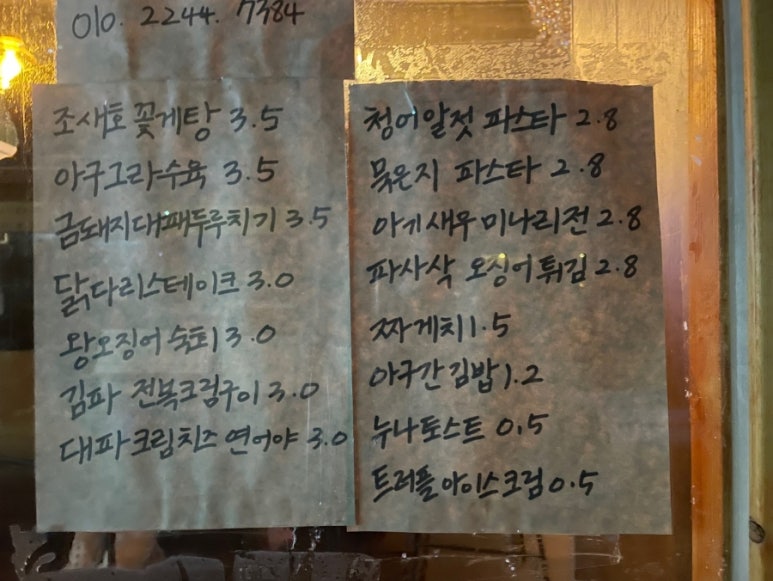 010. 2244. 7384
조새호 꽃게탕 3.5
아구그라수육 3.5
금돼지대패두루치기 3.5
닭다리스테이크 3.0
왕오징어숙회 3.0
김파 전복크림구이 3.0
대파크림치즈 연어야 3.0
청어알젓 파스타 2.8
묵은지 파스타 2.8
아기새우 미나리전 2.8
파사삭 오징어튀김 2.8
짜게치 1.5
아구간김밥 1.2
누나토스트 0.5
트러플아이스크림 0.5